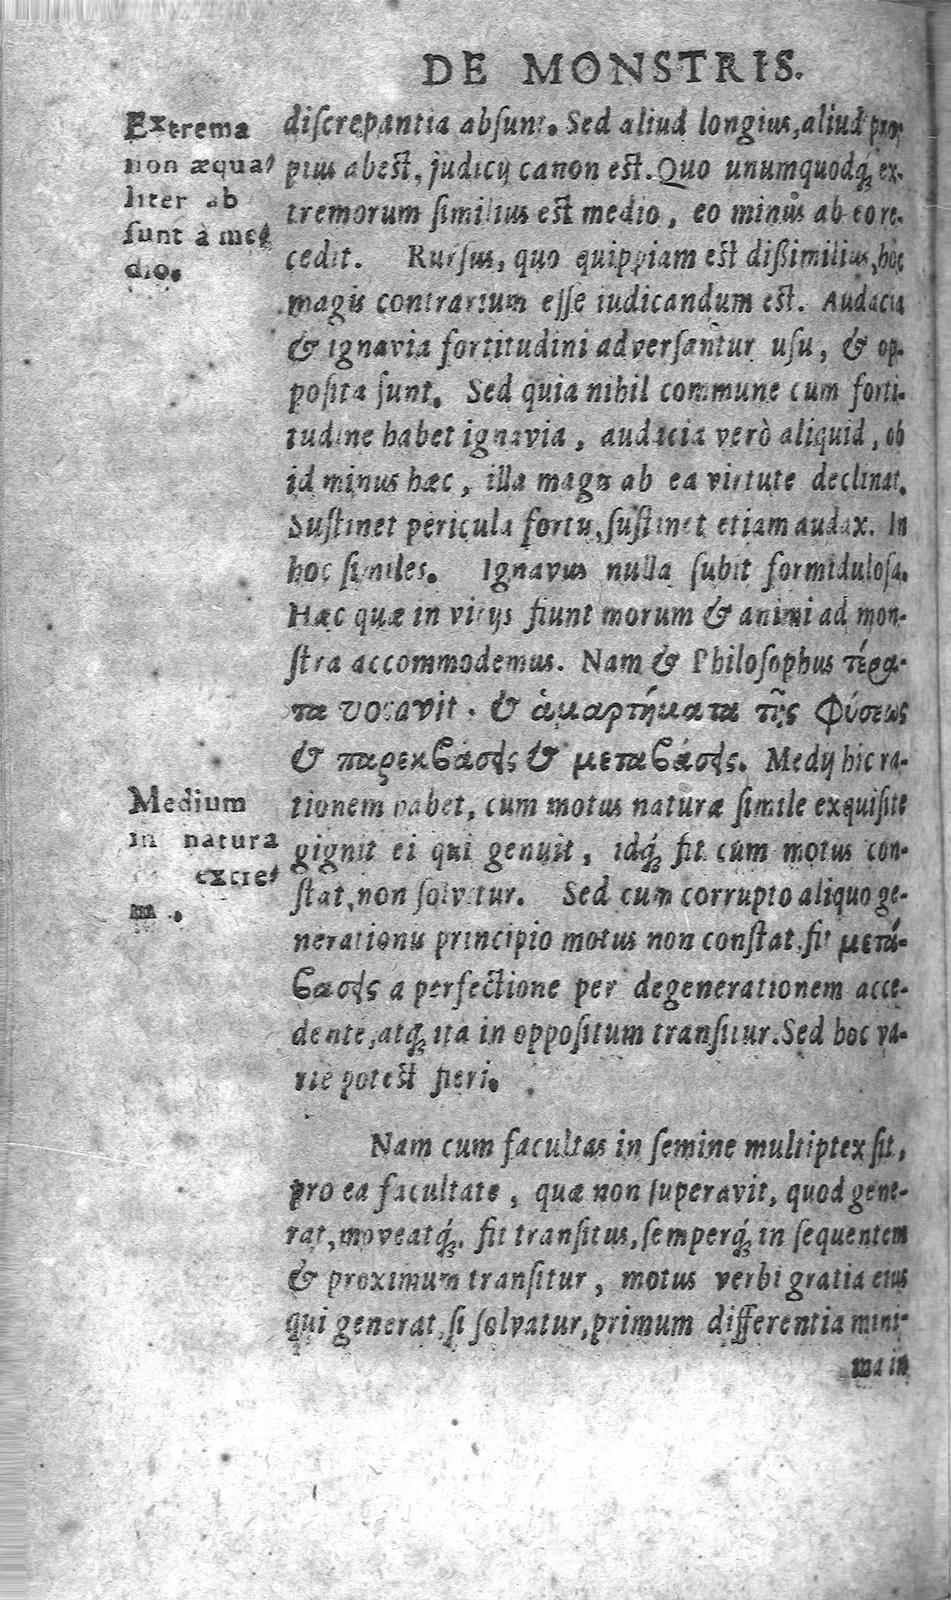 DE MONSTRIS.
Extrema
non æqua⸗
liter ab
sunt à me⸗
dio.
diſcrepantia abſunt. Sed aliud longius, aliud pro⸗
pius abeſt, judicij canon eſt. Quo unumquodq́; ex-
tremorum ſimilius eſt medio, eo minùs ab eo re-
cedit. Rurſus, quo quippiam eſt dißimilius, hoc
magis contrarium eſſe iudicandum eſt. Audacia
& ignavia fortitudini adverſantur uſu, & op-
poſita ſunt. Sed quia nihil commune cum forti-
tudine habet ignavia, audacia verò aliquid, ob
id minus hæc, illa magis ab ea virtute declinat.
Suſtinet pericula fortis, ſuſtinet etiam audax. In
hoc ſimiles. Ignavus nulla ſubit formiduloſa.
Hæc quæ in vitijs fiunt morum & animi ad mon-
ſtra accommodemus. Nam & Philoſophus τέρα-
τα vocavit. & ἁμαρτήματα τῆς φύσεως
& παρεκβάσεις & μεταβάσεις. Medij hic ra-
tionem habet, cum motus naturæ ſimile exquiſite
gignit ei qui genuit, idq́; fit cum motus con-
ſtat, non ſolvitur. Sed cum corrupto aliquo ge-
nerationis principio motus non conſtat, fit μετά-
βασις à perfectione per degenerationem acce-
dente, atq́; ita in oppoſitum tranſitur. Sed hoc va-
riè poteſt fieri.
Medium
in natura
excre⸗
Nam cum facultas in ſemine multiptex ſit,
pro ea facultate, quæ non ſuperavit, quod gene-
rat, moveatq́;. fit tranſitus, ſemperq́; in ſequentem
& proximum tranſitur, motus verbi gratia eius
qui generat, ſi ſolvatur, primum differentia mini-
ma in